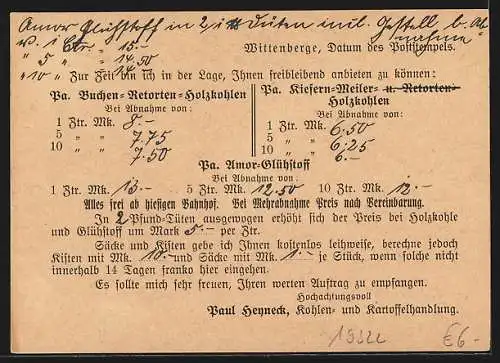 Amor Glühstoff in 2 ℔ Düten inkl. Gestell b. Ab
v. 1 Ctr. M 15.- nahme
" 5 " " 14,50
" 10 " " 14.-
Wittenberge, Datum des Poststempels.
Zur Zeit bin ich in der Lage, Ihnen freibleibend anbieten zu können:
Pa. Buchen-Retorten-Holzkohlen
Bei Abnahme von:
1 Ztr. Mk. 8.-
5 " " 7.75
10 " " 7.50
Pa. Kiefern-Meiler- u. Retorten-
Holzkohlen
Bei Abnahme von:
1 Ztr. Mk. 6,50
5 " " 6,25
10 " " 6.-
Pa. Amor-Glühstoff
Bei Abnahme von:
1 Ztr. Mk. 13.- 5 Ztr. Mk. 12.50 10 Ztr. Mk. 12.-
Alles frei ab hiesigen Bahnhof. Bei Mehrabnahme Preis nach Vereinbarung.
In 2 Pfund-Tüten ausgewogen erhöht sich der Preis bei Holzkohle
und Glühstoff um Mark 5.- per Ztr.
Säcke und Kisten gebe ich Ihnen kostenlos leihweise, berechne jedoch
Kisten mit Mk. 10.- und Säcke mit Mk. 1.- je Stück, wenn solche nicht
innerhalb 14 Tagen franko hier eingehen.
Es sollte mich sehr freuen, Ihren werten Auftrag zu empfangen.
Hochachtungsvoll
Paul Heyneck, Kohlen- und Kartoffelhandlung.
€6-